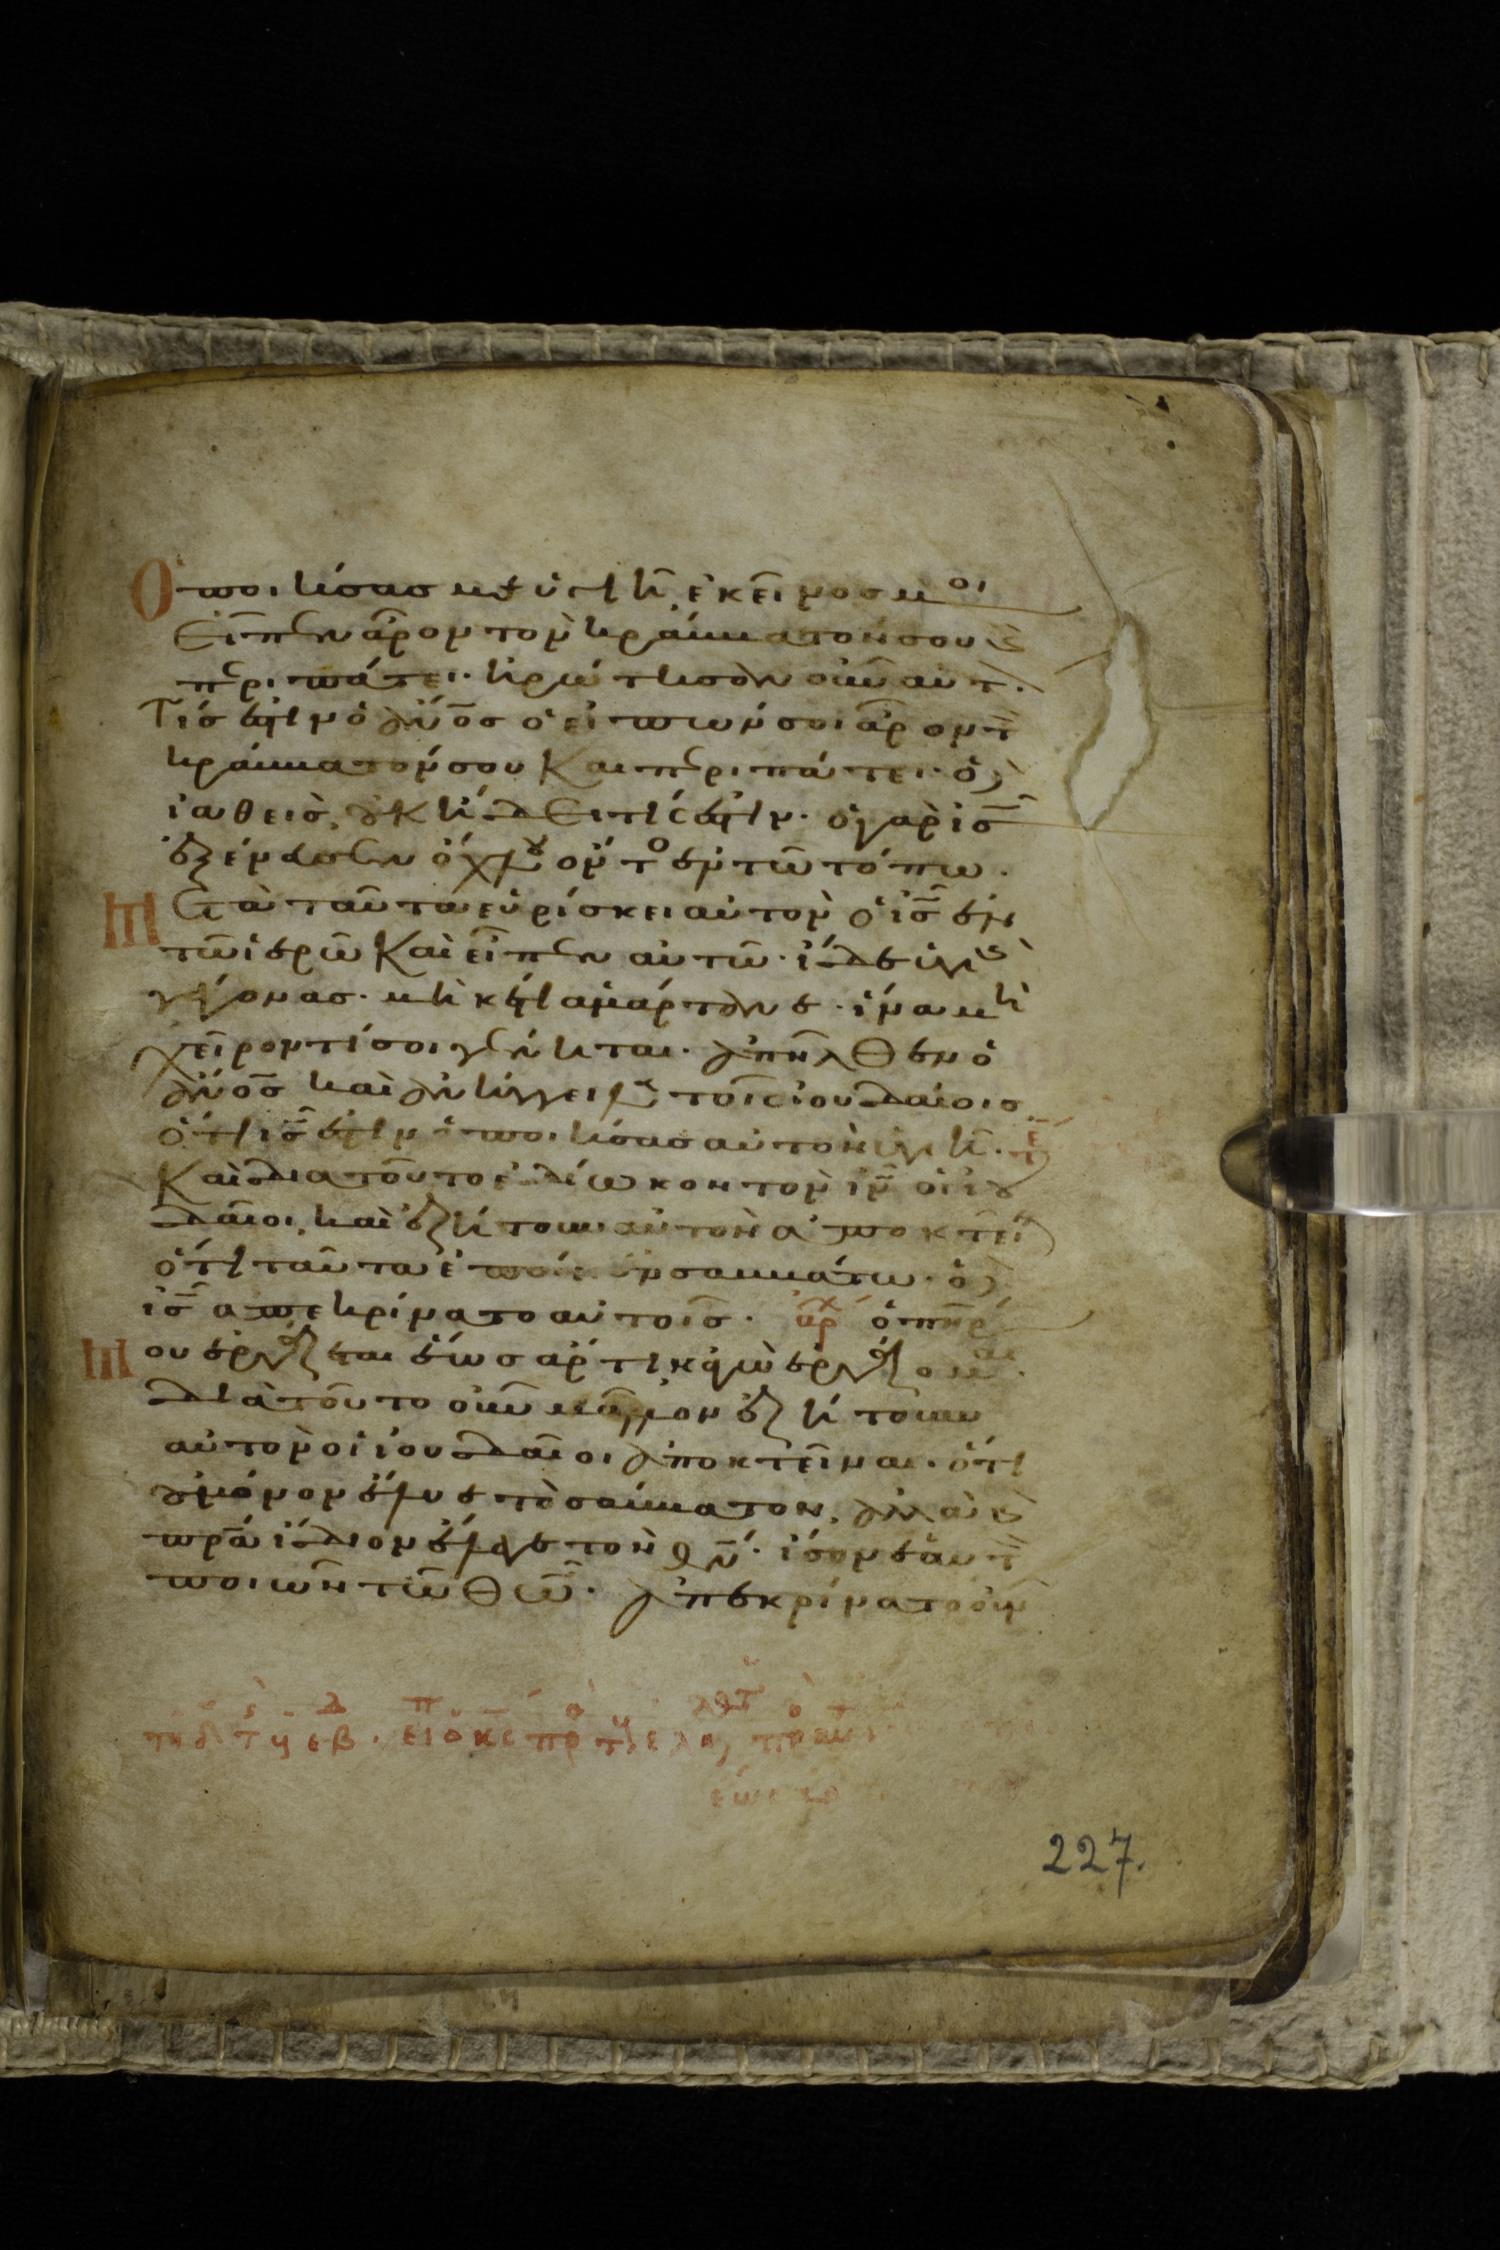 Ὁ ποιήσας με ὑγιῆ, ἐκεῖνος μοι
εἶπεν ἆρον τὸν κράββατόν σου κ
περιπάτει· ἠρώτησαν οὖν αὐτ
Τίς ἐστιν ὁ ἀνος ὁ εἰπών σοι ἆρον τ
κράββατόν σου καὶ περιπάτει· ὁ δ
ἰαθεὶς, οὐκ ἤδει τίς ἐστιν· ὁ γὰρ ις
ἐξένευσεν ὄχλου ὄντος ἐν τῶ τόπω·
Μετὰ ταῦτα εὑρίσκει αὐτὸν ὁ ις ἐν
τῶ ἱερῶ καὶ εἶπεν αὐτῶ· ἴδε ὑγιὴς
γέγονας· μηκέτι ἁμάρτανε· ἵνα μὴ
χεῖρόν τί σοι γένηται· ἀπῆλθεν ὁ
ἀνος καὶ ἀνήγγειλε τοῖς ἰουδαίοις
ὅτι ις ἐστιν ὁ ποιήσας αὐτὸν ὑγιῆ·
Καὶ διατοῦτο ἐδίωκον τὸν ιν οἱ ἰου
δαῖοι, καὶ ἐζήτουν αὐτὸν ἀποκτεῖν
ὅτι ταῦτα ἐποίει ἐν σαββάτω· ὁ δ
ις ἀπεκρίνατο αὐτοῖς· αρχ ὁ πηρ
Μου ἐργάζεται ἕως ἄρτι, κἀγὼ ἐργάζομαι·
διὰ τοῦτο οὖν μᾶλλον ἐζήτουν
αὐτὸν οἱ ἰουδαῖοι ἀποκτεῖναι· ὅτι
οὐ μόνον ἔλυε τὸ σάββατον, ἀλλὰ κ
πρα ἴδιον ἔλεγε τὸν θν· ἴσον ἑαυτ
ποιῶν τῶ θω· ἀπεκρίνατο οὖν
227.